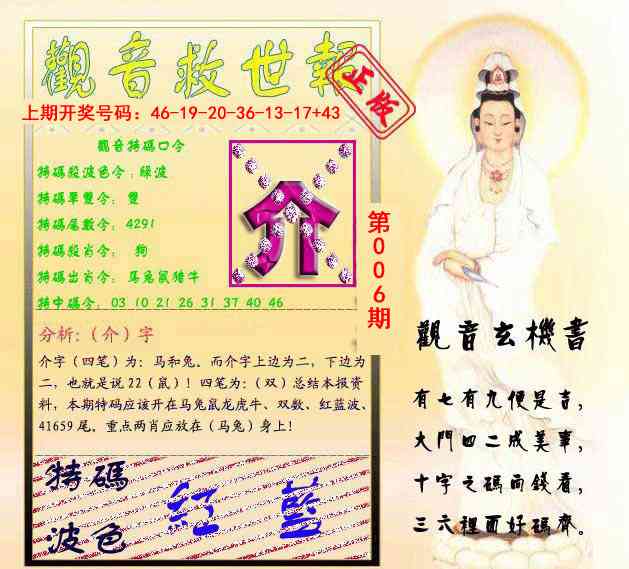 觀音救世報
正版
上期开奖号码：46-19-20-36-13-17+43
觀音特碼口令
特碼殺波色令：綠波
特碼單雙令：雙
特碼尾數令：4291
特碼殺肖令：狗
特碼出肖令：马兔鼠猪牛
特中碼令：03 10 21 26 31 37 40 46
介
第006期
分析:（介）字
介字（四笔）为：马和兔。而介字上边为二，下边为
二，也就是说22（鼠）！四笔为：（双）总结本报资
料，本期特码应该开在马兔鼠龙虎牛、双数、红蓝波、
41659尾。重点两肖应放在（马兔）身上！
特碼
波色
紅 藍
觀音玄機書
有七有九便是吉，
大門四二成美事，
十字之碼而錢看，
三六裡面好碼齊。